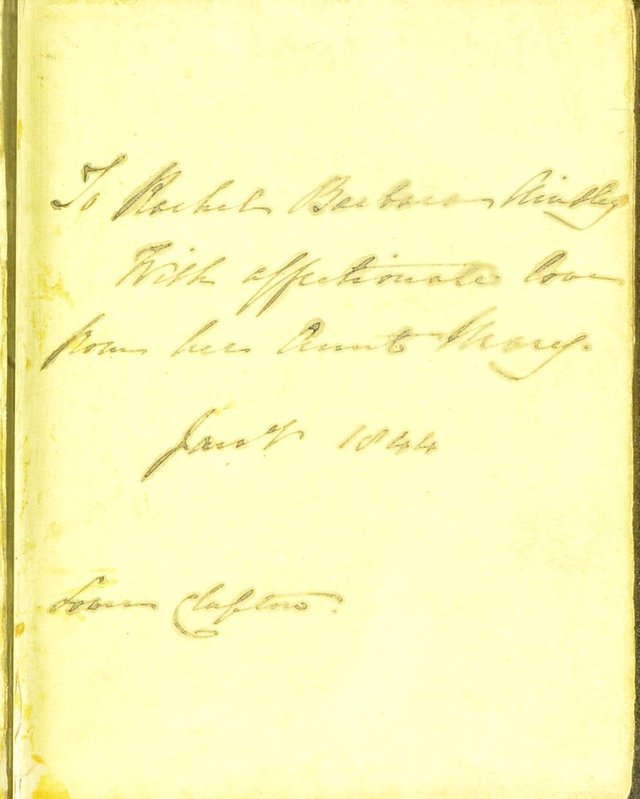 To Rachel Barbara
With affectionate love
from her Aunt Mary.
Jany 1844
Lower Clapton.